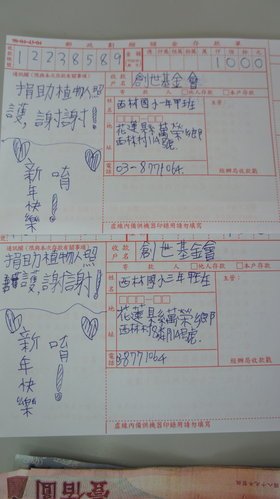 98-04-43-04 郵政劃撥儲金存款單
收款帳號 12238589 金額 仟 佰 拾 萬 仟 佰 拾 元
1000
通訊欄(限與本次存款有關事項)
捐助植物人照
護,謝謝!
新年快樂
唷!
收款戶名 創世基金會
寄款人 □他人存款 □本戶存款
姓名 西林國小一年甲班
主管:
地址 花蓮縣萬榮鄉
西林村114號
電話 03-8771064
經辦局收款戳
虛線內備供機器印錄用請勿填寫
通訊欄(限與本次存款有關事項)
捐助植物人照
護,謝謝!
新年快樂
唷!
收款戶名 創世基金會
寄款人 □他人存款 □本戶存款
姓名 西林國小三年甲班
主管:
地址 花蓮縣萬榮鄉
電話 8771064
經辦局收款戳
虛線內備供機器印錄用請勿填寫
壹佰圓